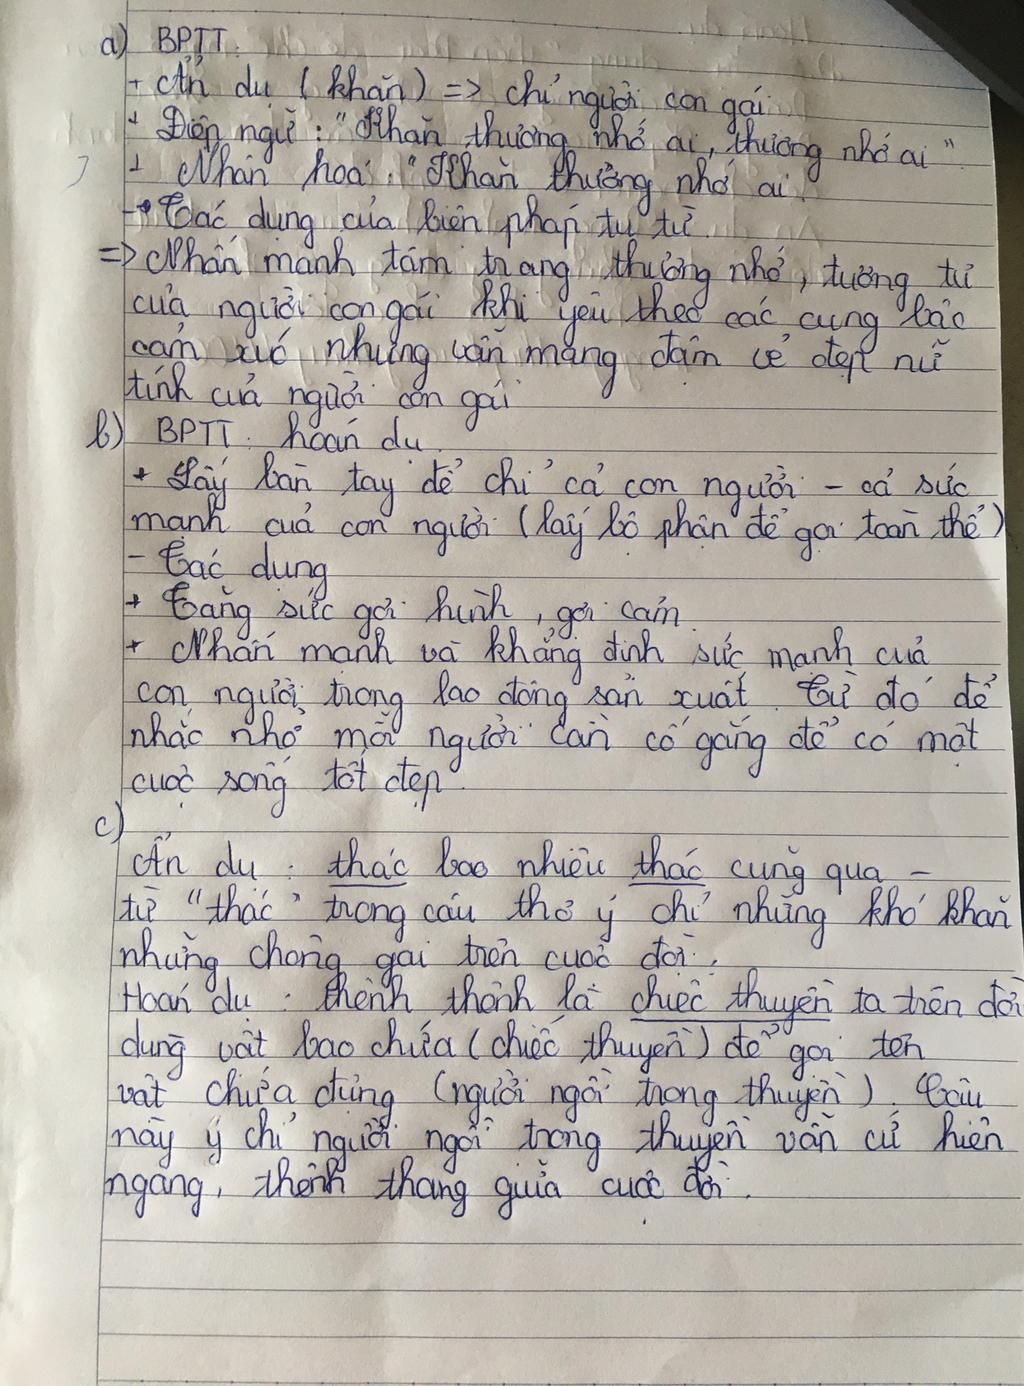 a) BPTT:
+ Ẩn dụ (khăn) => chỉ người con gái
+ Điệp ngữ: "Khăn thương nhớ ai, thương nhớ ai"
+ Nhân hoá: "Khăn thương nhớ ai.
-• Tác dụng của biên pháp tu từ.
=> Nhấn mạnh tâm trạng thương nhớ, tương tư
của người con gái khi yêu theo các cung bậc
cảm xúc nhưng vẫn mang đậm vẻ đẹp nữ
tính của người con gái
b) BPTT: hoán dụ.
+ Lấy bàn tay để chỉ cả con người - cả sức
mạnh của con người (lấy bộ phận để gọi toàn thể)
- Tác dụng
+ Tăng sức gợi hình, gợi cảm
+ Nhấn mạnh và khẳng định sức mạnh của
con người trong lao động sản xuất. Từ đó để
nhắc nhở mỗi người cần cố gắng để có một
cuộc sống tốt đẹp.
c)
Ẩn dụ: thác bao nhiêu thác cũng qua -
từ "thác" trong câu thơ ý chỉ những khó khăn
những chông gai trên cuộc đời.
Hoán dụ: thênh thênh là chiếc thuyền ta trên đời
dùng vật bao chứa (chiếc thuyền) để gọi tên
vật chứa đựng (người ngồi trong thuyền). Câu
này ý chỉ người ngồi trong thuyền vẫn cứ hiên
ngang, thênh thang giữa cuộc đời.